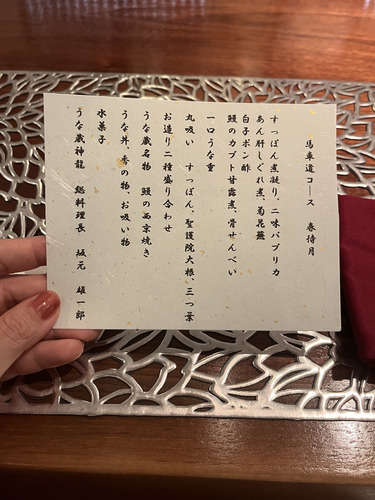 馬車道コース　春待月
すっぽん煮凝り、二味パプリカ
あん肝しぐれ煮、菊花蕪
白子ポン酢
鰻のカブト甘露煮、骨せんべい
一口うな重
丸吸い　すっぽん、聖護院大根、三つ葉
お造り二種盛り合わせ
うな蔵名物　鰻の西京焼き
うな丼、香の物、お吸い物
水菓子
うな蔵神龍　総料理長　坂元　雄一郎